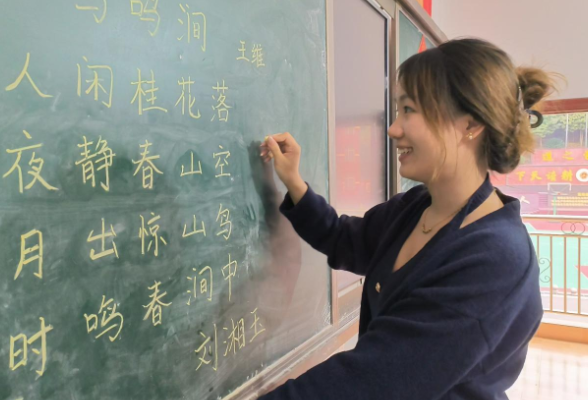 鸟鸣涧
王维
人闲桂花落
夜静春山空
月出惊山鸟
时鸣春涧中
刘湘玉